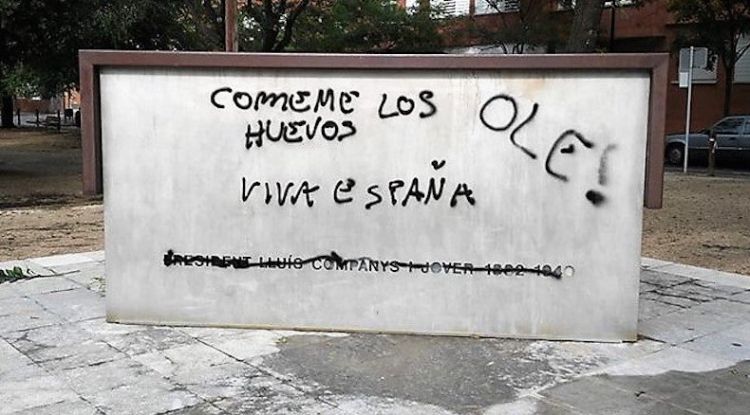 COMEME LOS
HUEVOS
OLE!
VIVA ESPAÑA
PRESIDENT LLUÍS COMPANYS I JOVER 1882-1940